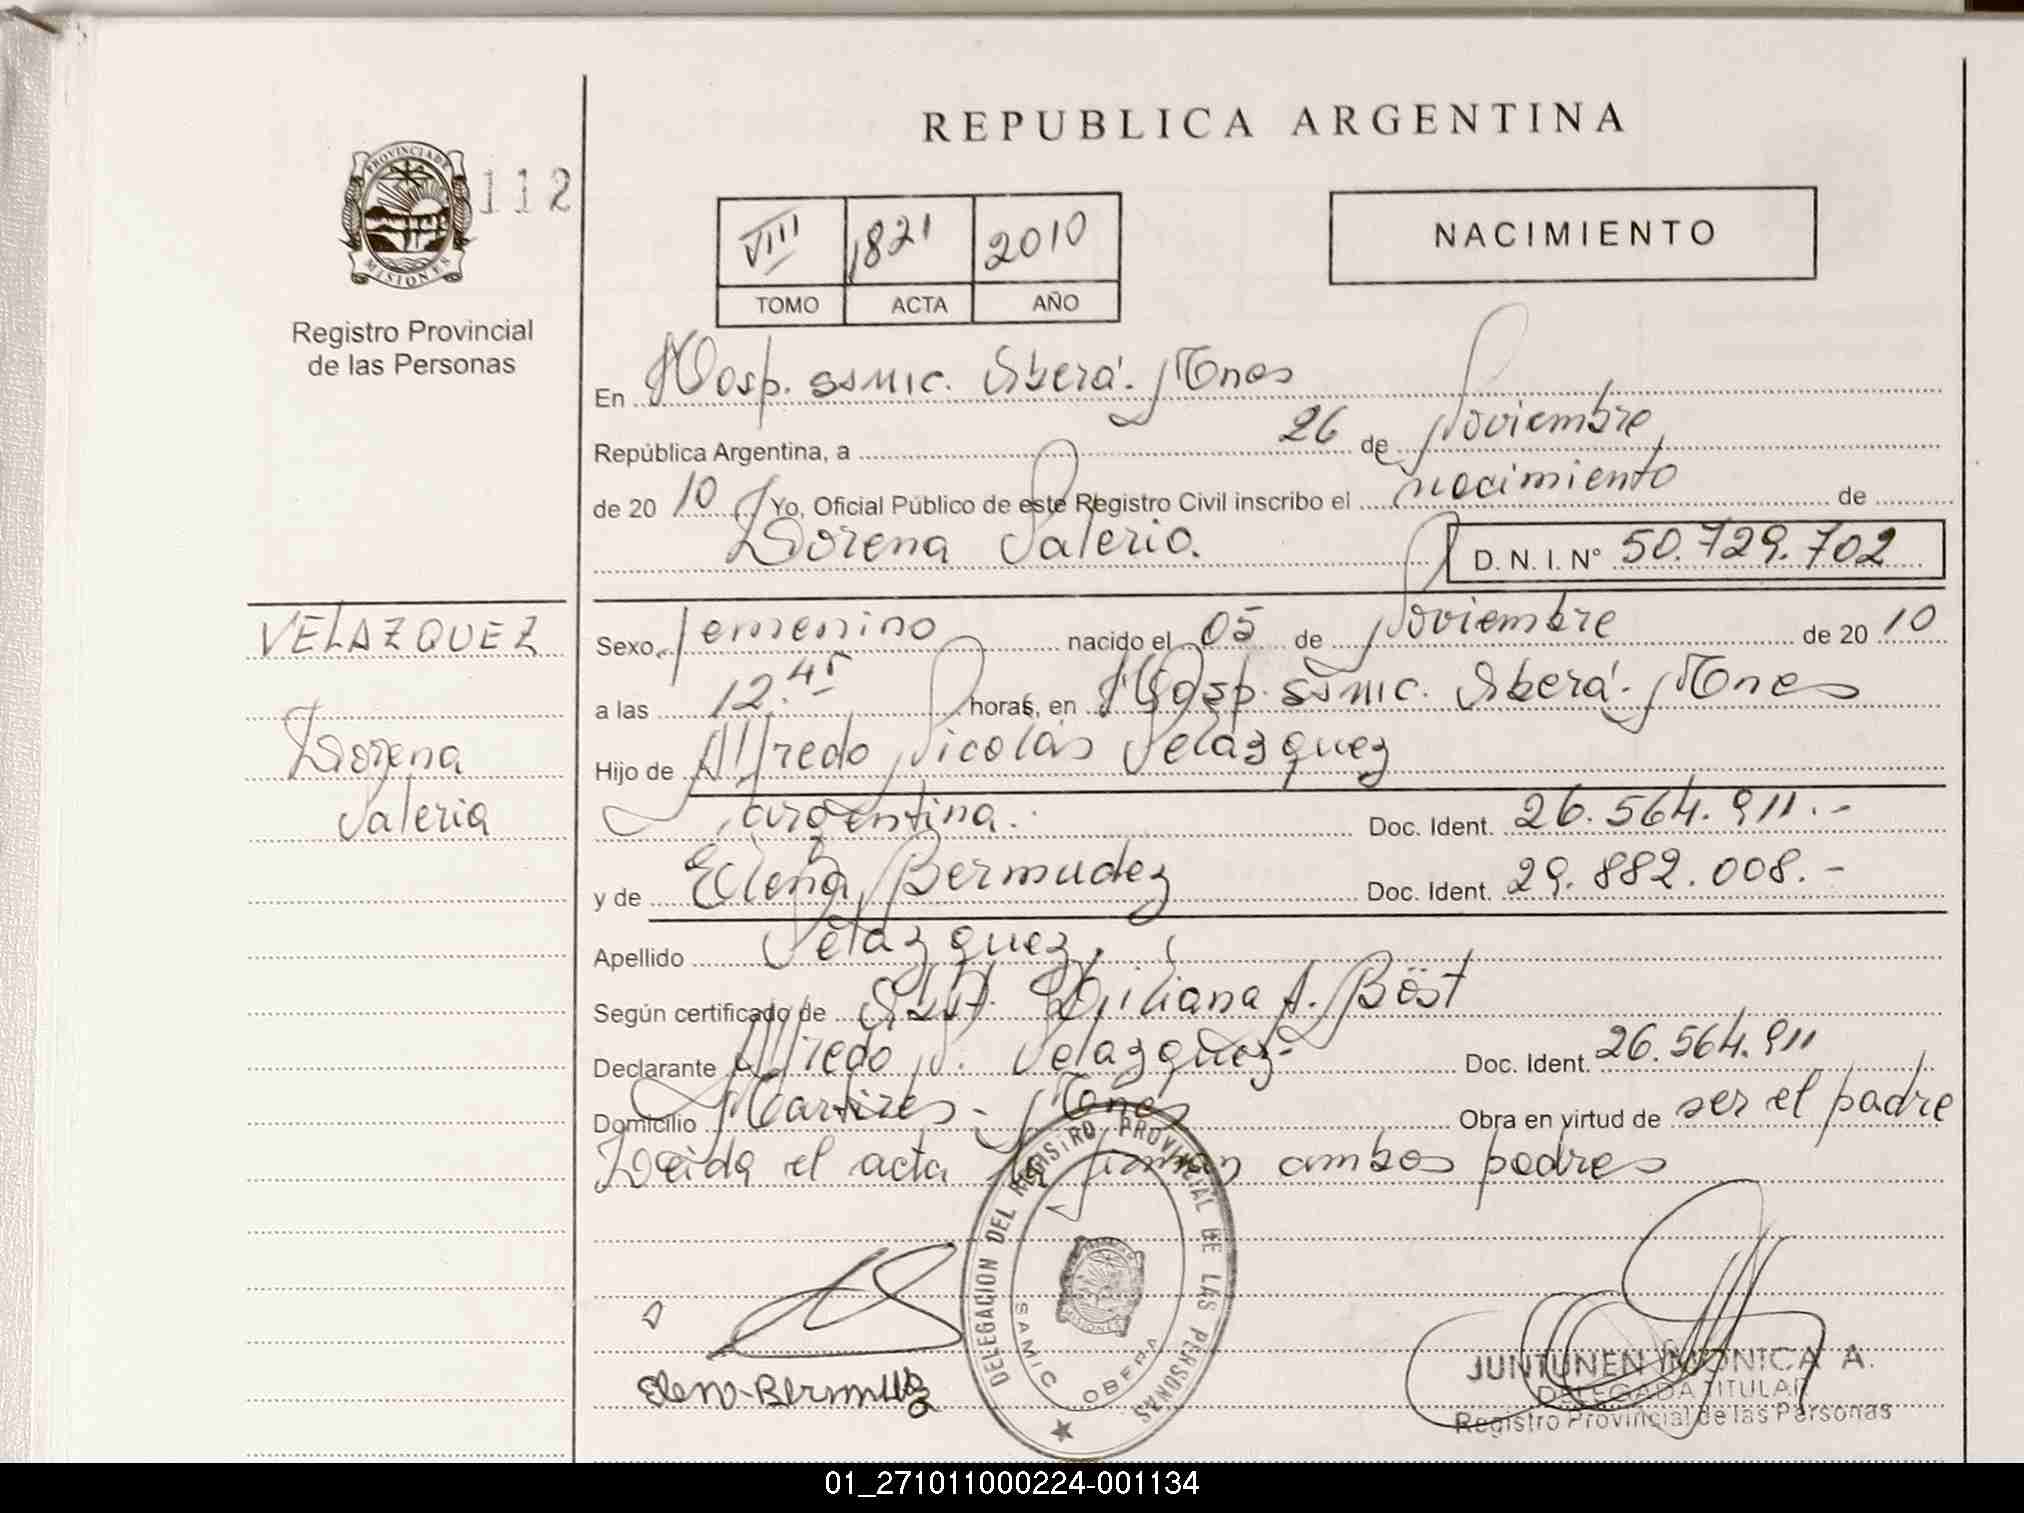 REPUBLICA ARGENTINA
PROVINCIA DE
MISIONES
112
Registro Provincial
de las Personas
VIII 1821 2010
TOMO ACTA AÑO
NACIMIENTO
En Hosp. SAMIC. Oberá. Mnes
República Argentina, a 26 de Noviembre
de 2010 Yo, Oficial Público de este Registro Civil inscribo el nacimiento de
Lorena Valeria.
D. N. I. N° 50.729.702
VELAZQUEZ
Lorena
Valeria
Sexo femenino nacido el 05 de Noviembre de 2010
a las 12.45 horas, en Hosp. SAMIC. Oberá. Mnes
Hijo de Alfredo Nicolás Velázquez
argentina. Doc. Ident. 26.564.911.-
y de Elena Bermudez Doc. Ident. 29.882.008.-
Apellido Velazquez.
Según certificado de Obst. Liliana A. Böst
Declarante Alfredo N. Velazquez- Doc. Ident. 26.564.911
Domicilio Martires- Mnes Obra en virtud de ser el padre
Leida el acta la firman ambos padres
DELEGACION DEL REGISTRO PROVINCIAL DE LAS PERSONAS
SAMIC OBERA
MISIONES
JUNTUNEN MONICA A.
DELEGADA TITULAR
Registro Provincial de las Personas
01_271011000224-001134